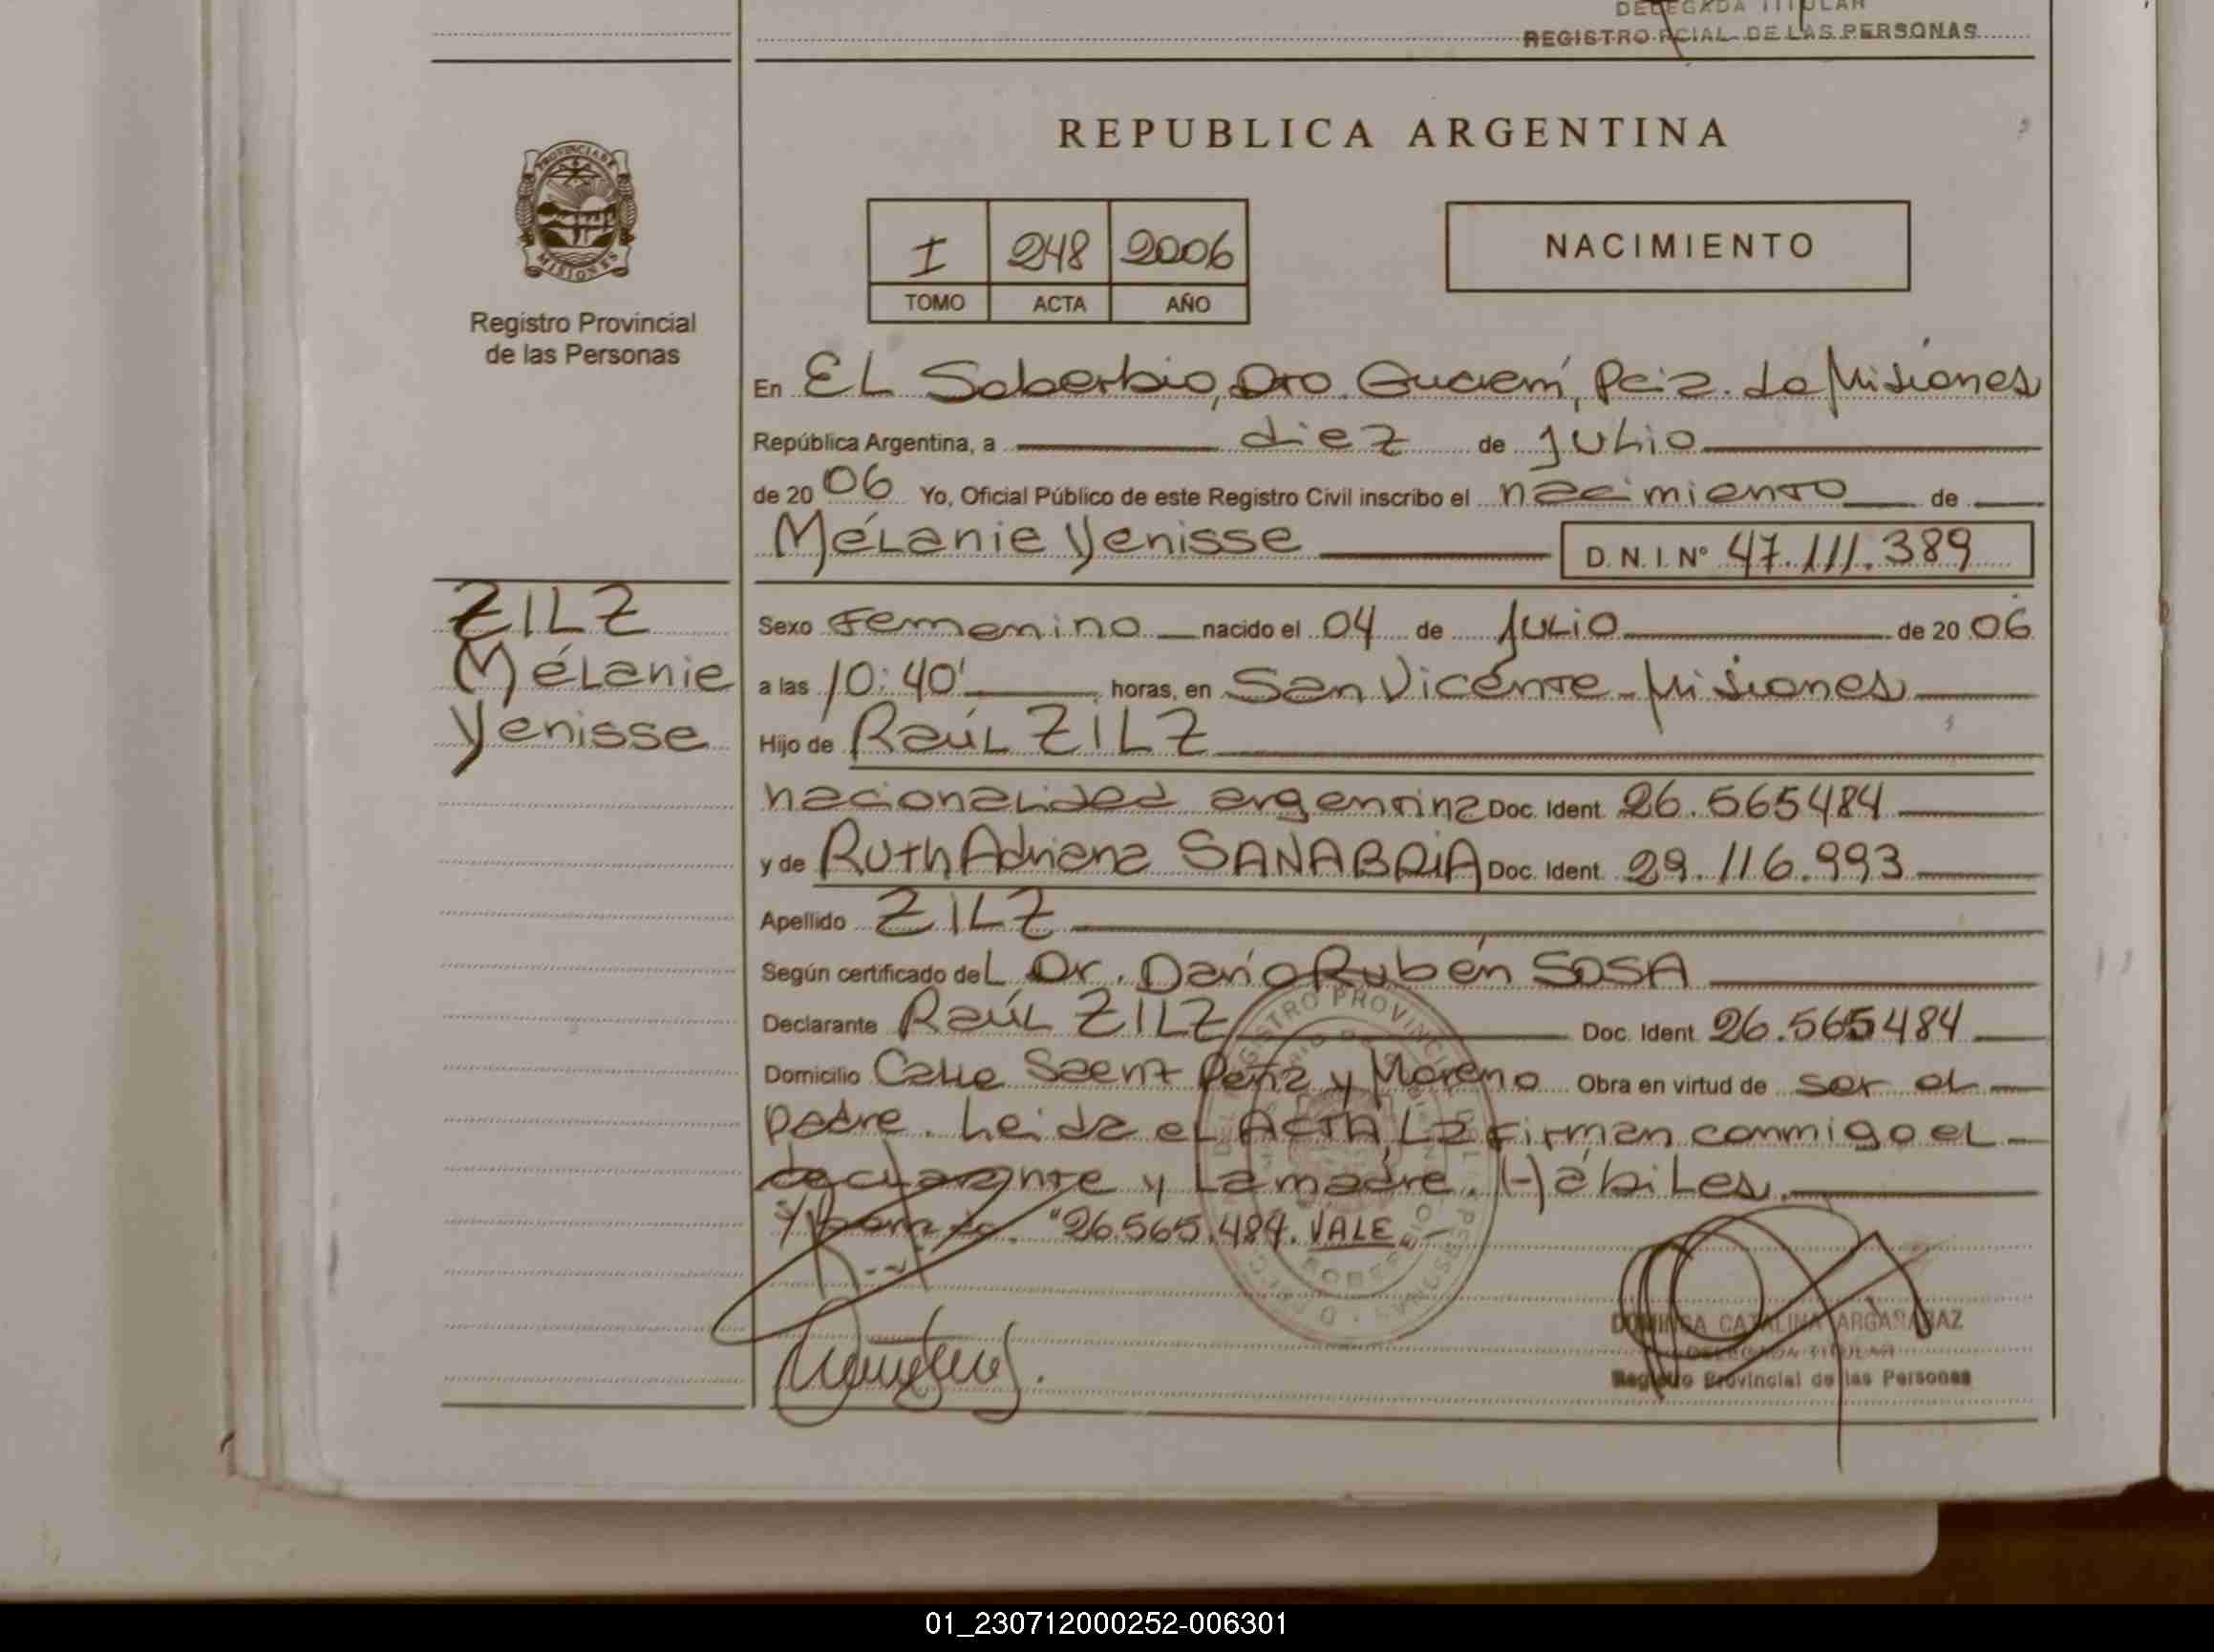 DELEGADA TITULAR
REGISTRO PCIAL. DE LAS PERSONAS
PROVINCIA DE
MISIONES
Registro Provincial
de las Personas
REPUBLICA ARGENTINA
I 248 2006
TOMO ACTA AÑO
NACIMIENTO
En EL Soberbio, Dto. Guaraní, Pcia. de Misiones
República Argentina, a diez de Julio
de 2006 Yo, Oficial Público de este Registro Civil inscribo el nacimiento de
Mélanie Yenisse D.N.I. N° 47.111.389
ZILZ
Mélanie
Yenisse
Sexo Femenino nacido el 04 de Julio de 2006
a las 10:40' horas, en San Vicente - Misiones
Hijo de Raúl ZILZ
nacionalidad argentina Doc. Ident. 26.565484
y de Ruth Adriana SANABRIA Doc. Ident. 29.116.993
Apellido ZILZ
Según certificado del Dr. Darío Rubén SOSA
Declarante Raúl ZILZ Doc. Ident. 26.565484
Domicilio Calle Saenz Peña y Moreno Obra en virtud de ser el
padre. Leida el ACTA, La firman conmigo el
declarante y La madre. Hábiles.
"26.565.484. VALE.-
DOMINGA CATALINA ARGAÑARAZ
DELEGADA TITULAR
Registro Provincial de las Personas
01_230712000252-006301